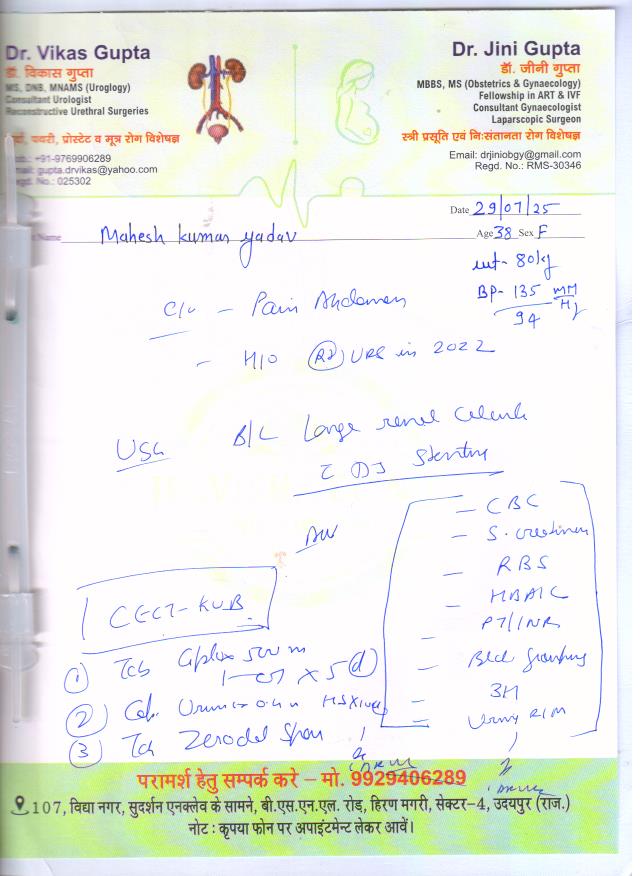 Dr. Vikas Gupta
डॉ. विकास गुप्ता
MS, DNB, MNAMS (Urology)
Consultant Urologist
Reconstructive Urethral Surgeries
पथरी, प्रोस्टेट व मूत्र रोग विशेषज्ञ
+91-9769906289
gupta.drvikas@yahoo.com
Regd. No.: 025302
Dr. Jini Gupta
डॉ. जीनी गुप्ता
MBBS, MS (Obstetrics & Gynaecology)
Fellowship in ART & IVF
Consultant Gynaecologist
Laparscopic Surgeon
स्त्री प्रसूति एवं निःसंतानता रोग विशेषज्ञ
Email: drjiniobgy@gmail.com
Regd. No.: RMS-30346
Date 29/07/25
Name Mahesh kumar yadav
Age 38 Sex F
wt- 80kg
BP- 135/94 MM/Hg
C/o - Pain Abdomen
- H/O Rt URS in 2022
USG B/L Large renal calculi
c DJ Stenting
Adv
- CBC
- S. creatinine
- RBS
- HBA1C
PT/INR
- Blood grouping
- 3H
- Urine R/M
CECT-KUB
① Tab 500 m
1-0-1 x 5 d
② Cap
③ Tab Zerodol Spas
परामर्श हेतु सम्पर्क करे – मो. 9929406289
107, विद्या नगर, सुदर्शन एनक्लेव के सामने, बी.एस.एन.एल. रोड, हिरण मगरी, सेक्टर-4, उदयपुर (राज.)
नोट : कृपया फोन पर अपाइंटमेन्ट लेकर आवें।